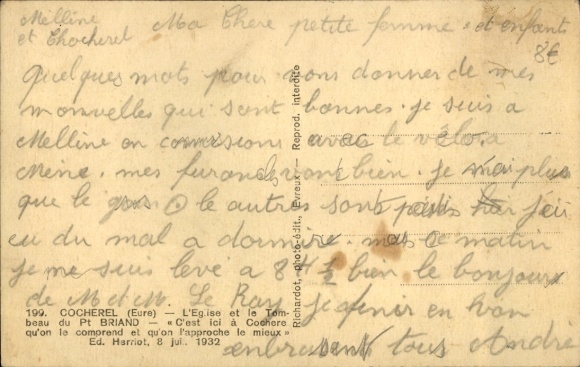 Melline
et Chocherel
Ma Chere petite femme et enfants
8€
quelques mots pour vous donner de mes
nouvelles qui sont bonnes. je suis a
Melline en comissions avec le vélo a
Meine. mes furoncles vont bien. je n'ai plus
que le gros les autres sont partis j'ai
eu du mal a dormire. mais ce matin
je me suis levé a 8 H ½ bien le bonjour
de M et M. Le Ray je finir en vous
enbrassant tous André
199. COCHEREL (Eure) — L'Eglise et le Tom-
beau du Pt BRIAND — «C'est ici à Cochere
qu'on le comprend et qu'on l'approche le mieux»
Ed. Herriot, 8 juil. 1932
Richardot, photo-édit., Evreux — Reprod. interdite